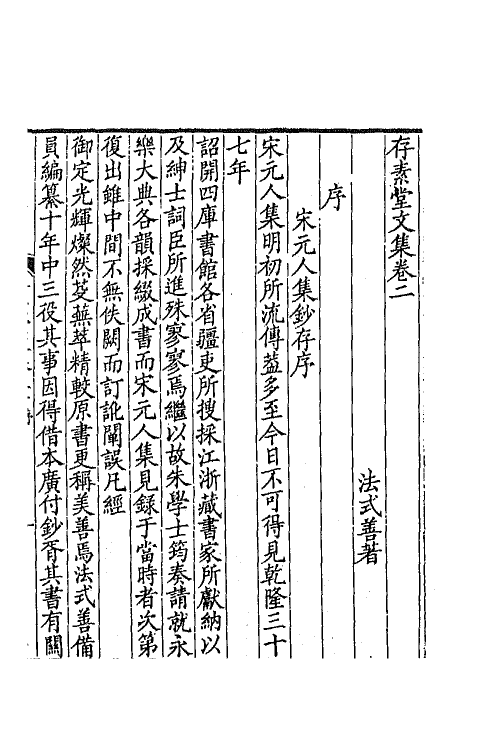 存素堂文集卷二
法式善著
序
宋元人集鈔存序
宋元人集明初所流傳葢多至今日不可得見乾隆三十
七年
詔開四庫書館各省疆吏所搜採江浙藏書家所獻納以
及紳士詞臣所進殊寥寥焉繼以故朱學士筠奏請就永
樂大典各韻採綴成書而宋元人集見録于當時者次第
復出雖中間不無佚闕而訂訛闡誤凡經
御定光輝燦然芟蕪萃精較原書更稱美善焉法式善備
員編纂十年中三役其事因得借本廣付鈔胥其書有關